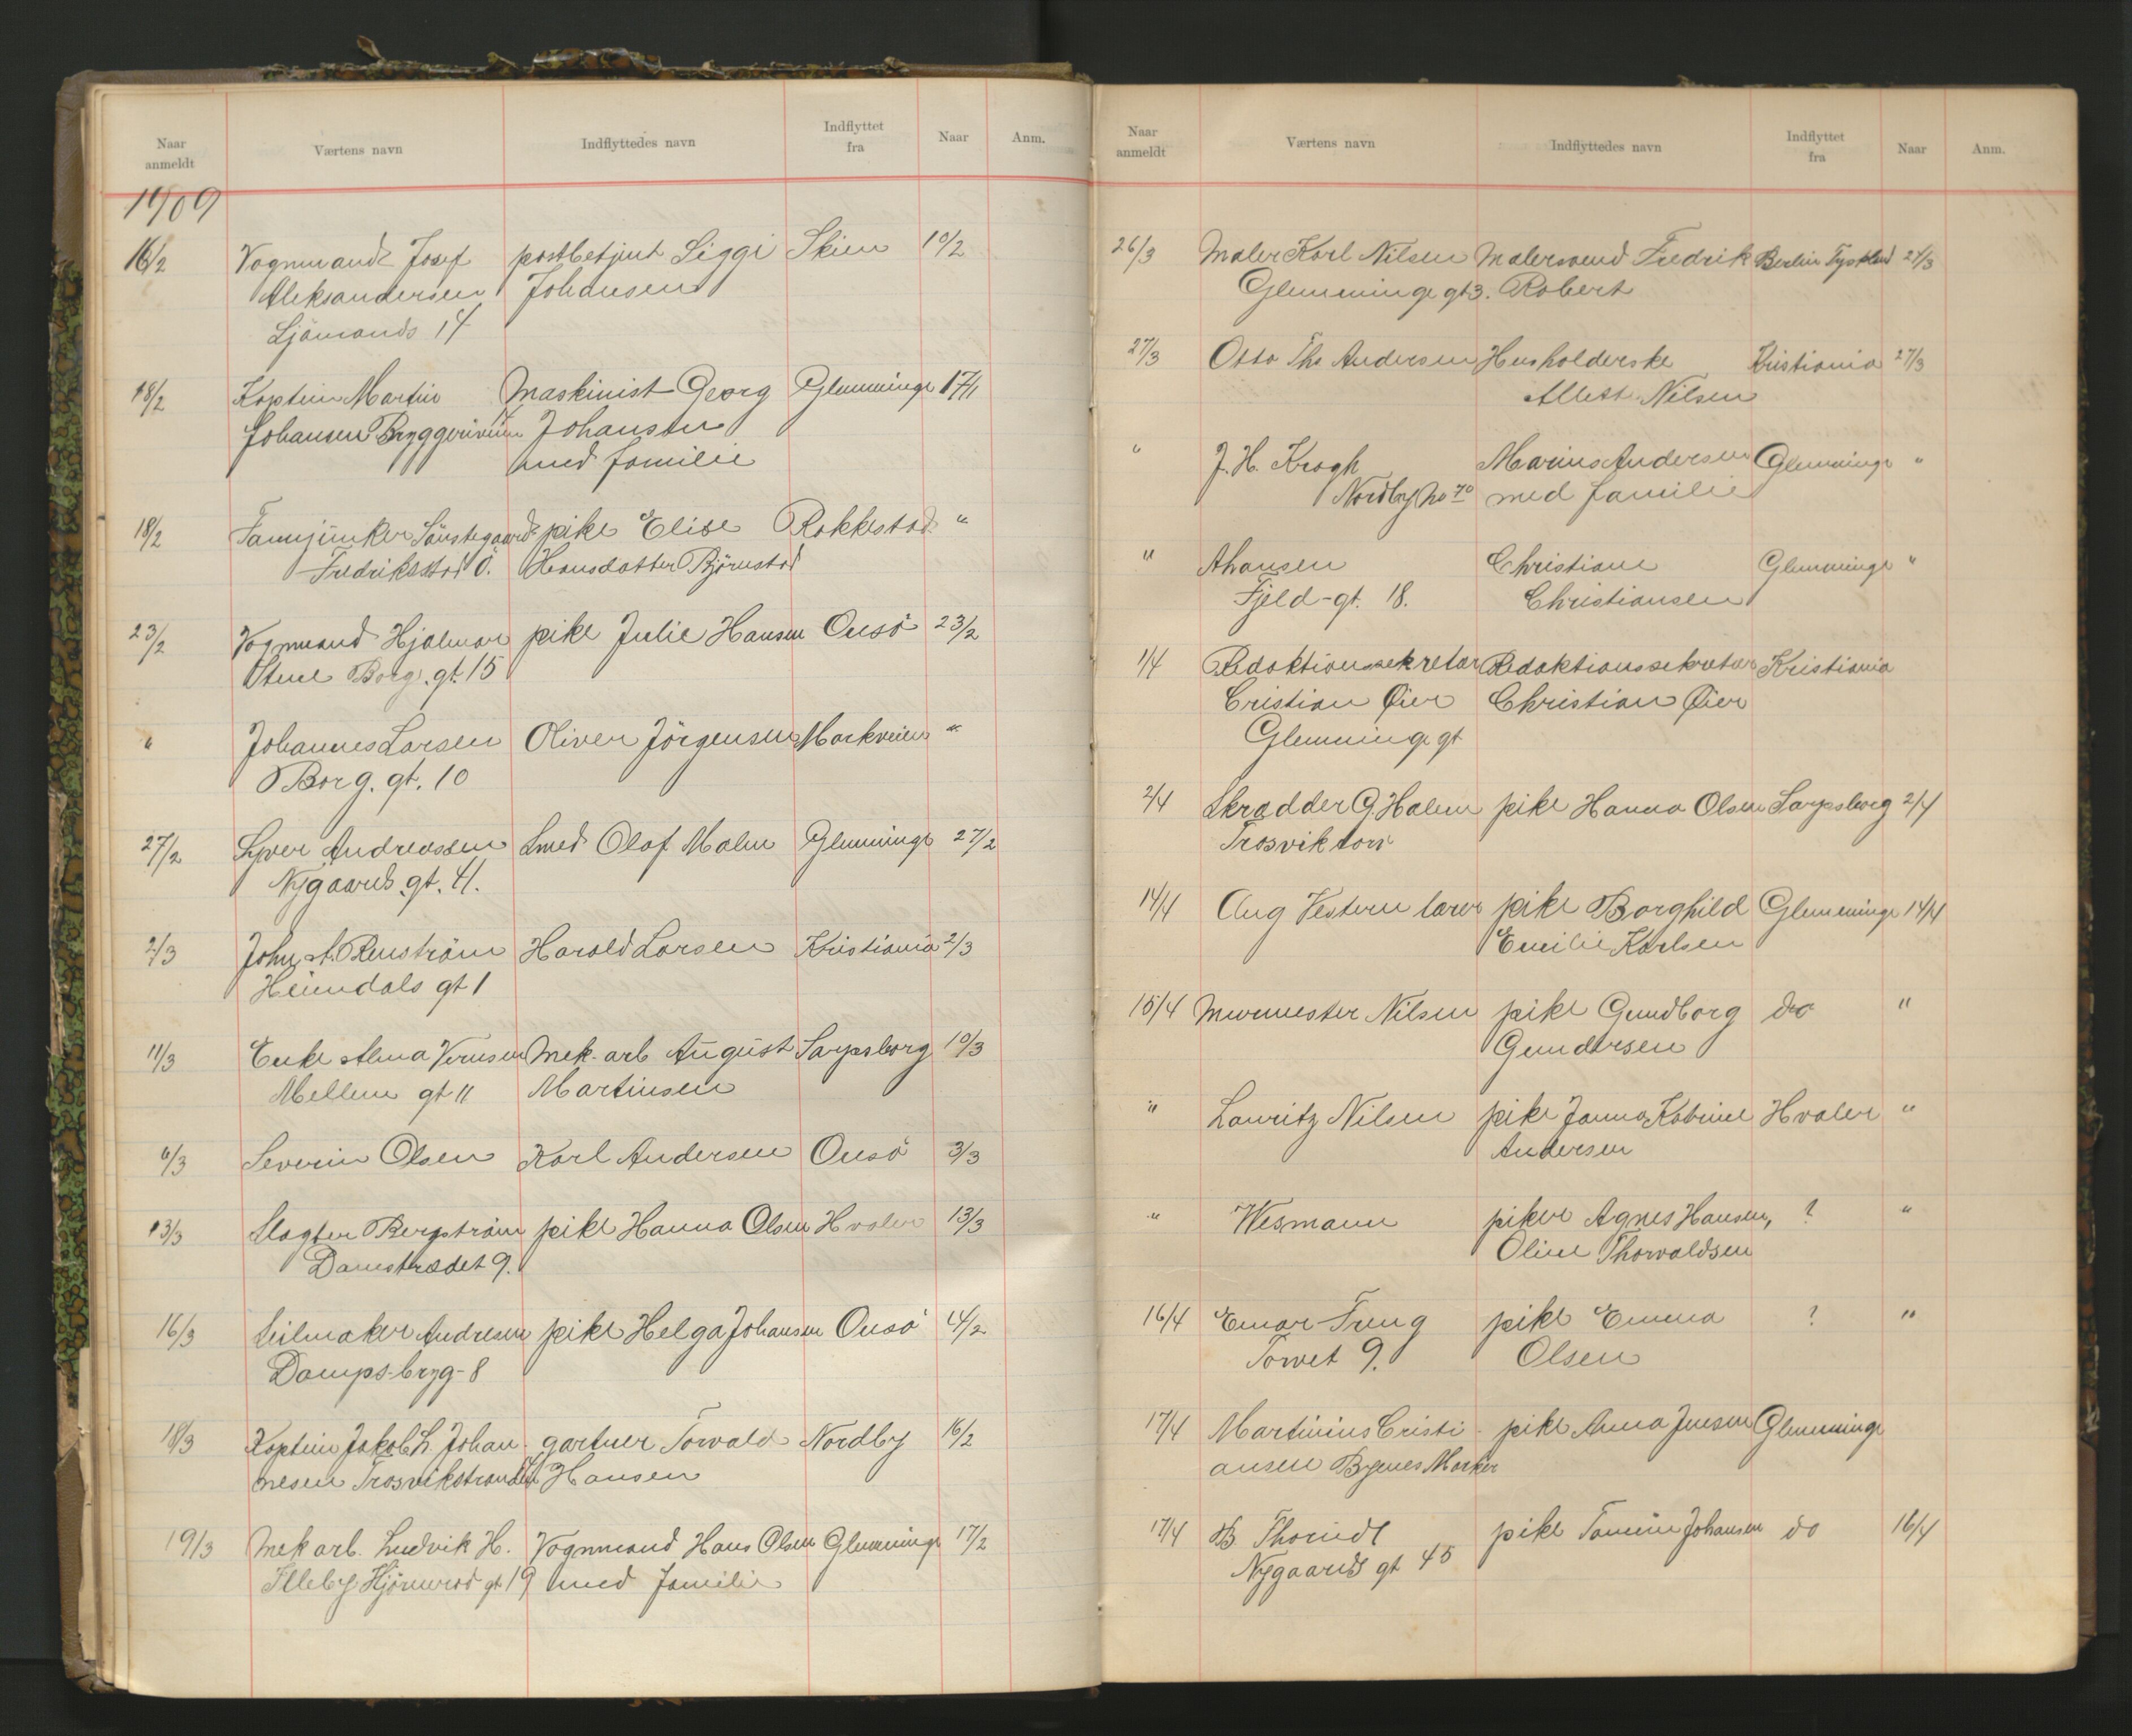 Naar anmeldt Værtens navn Indflyttedes navn Indflyttet fra Naar Anm.
1909
16/2 Vognmand Josef postbetjent Siggi Skien 10/2
Aleksandersen Johansen
Sjömands 14
18/2 Kaptein Martin Maskinist Georg Glemminge 17/1
Johansen Bryggeriveien Johansen
med familie
18/2 Fanejunker pike Elise Rakkestad "
Fredriksstad Ö. Hansdatter Björnstad
23/2 Vognmand Hjalmar pike Julie Hansen Onsö 23/2
Stene Borg. gt. 15
" Johannes Larsen Oliver Jörgensen Markveien "
Borg. gt. 10
27/2 Syver Andreassen Smed Olaf Malm Glemminge 27/2
Nygaards gt. 41.
2/3 John A. Renström Harald Larsen Kristiania 2/3
Heimdals gt 1
11/3 Enke Alma Mek. arb August Sarpsborg 10/3
Mellem gt 11 Martinsen
6/3 Severin Olsen Karl Andersen Onsö 3/3
13/3 Slagter Bergström pike Hanna Olsen Hvaler 13/3
Damstrædet 9.
16/3 Seilmaker Andresen pike Helga Johansen Onsö 14/2
Damps-bryg-8
18/3 Kaptein Jakob L. Johan- gartner Torvald Nordby 16/2
nesen Trosvikstranden Hansen
19/3 Mek arb. Ludvik H. Vognmand Hans Olsen Glemminge 17/2
Illeby gt 19 med familie
Naar anmeldt Værtens navn Indflyttedes navn Indflyttet fra Naar Anm.
26/3 Maler Karl Nilsen Malersvend Fredrik Berlin Tyskland 24/3
Glemminge gt 3. Robert
27/3 Otto Ths Andersen Husholderske Kristiania 27/3
Nilsen
" J. H. Krogh Marius Andersen Glemminge "
Nordby No 70 med familie
" A Hansen Christiane Glemminge "
Fjeld-gt. 18. Christiansen
1/4 Redaktionssekretær Redaktionssekretær Kristiania
Cristian Øier Christian Øier
Glemminge gt
2/4 Skrædder G. Halem pike Hanna Olsen Sarpsborg 2/4
Trosviktorv
14/4 Aug Vestern lærer pike Borghild Glemminge 14/4
Emilie Karlsen
15/4 Murmester Nilsen pike Gundborg do "
Gundersen
" Lauritz Nilsen pike Janna Katrine Hvaler "
Andersen
" Wesmann piker Agnes Hansen, ? "
Oline Thorvaldsen
16/4 Einar Tung pike Emma ? "
Torvet 9. Olsen
17/4 Martinius Cristi- pike Anna Jensen Glemminge
ansen Byens Marker
17/4 B. pike Johansen do 16/4
Nygaards gt 45